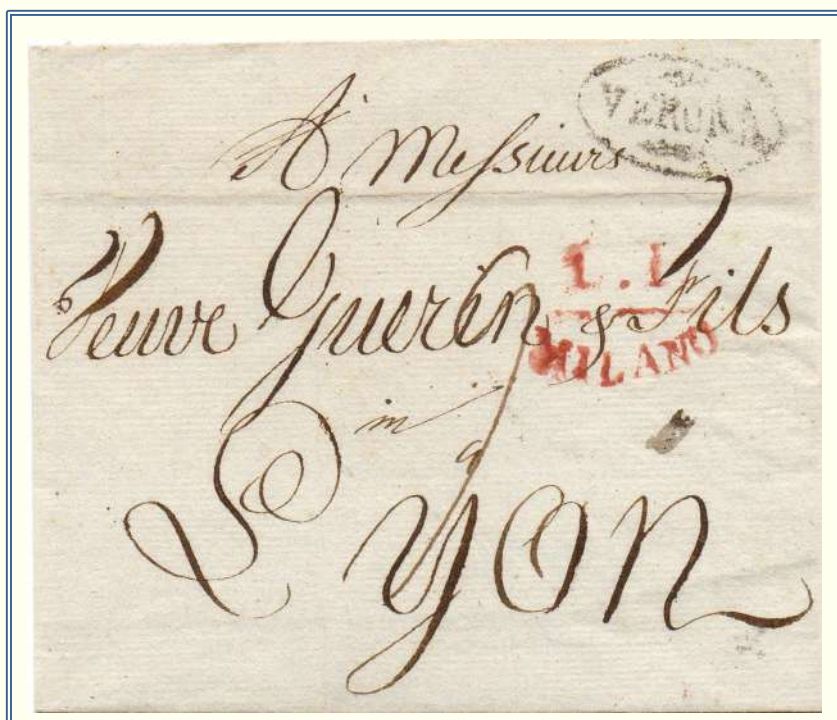 VERONA
A Messieurs
Veuve Guerin & Fils
L. I
MILANO
in
a
Lyon